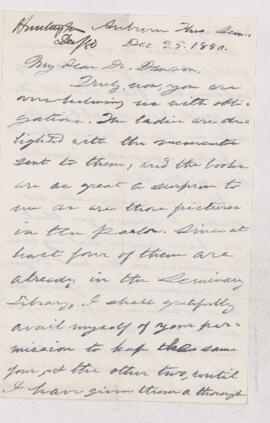 Huntington Auburn Theo. Sem.,
Dec/80 Dec. 25. 1880.
My Dear Dr. Dawson,
Truly, now, you are
overwhelming us with obli-
gations. The ladies are de-
lighted with the mementos
sent to them, and the books
are as great a surprise to
me as are those pictures
in the parlor. Since at
least four of them are
already in the Seminary
Library, I shall gratefully
avail myself of your per-
mission to keep the same
four, and the other two, until
I have given them a thorough